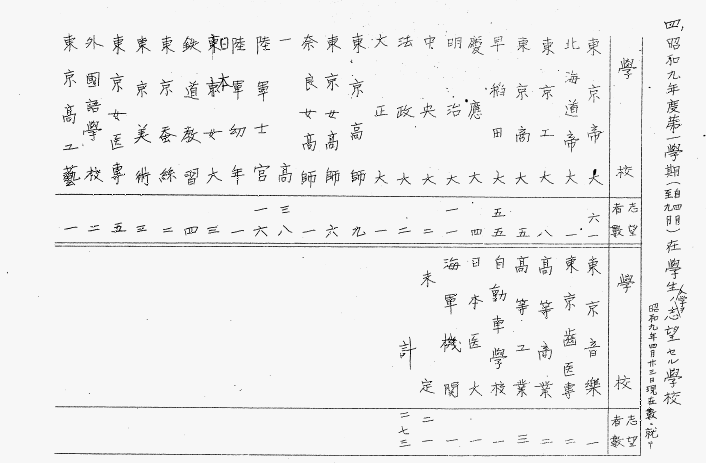 四、昭和九年度第一學期(自四月至九月)在學生ノ入學志望セル學校
昭和九年四月廿三日現在數ニ就キ
學校 志望者數
東京帝大 六一
北海道帝大 一
東京工大 八
東京商大 五
早稲田大 五五
慶應大 四
明治大 一一
中央大 二
法政大 二
大正大 一
東京高師 九
東京女高師 六
奈良女高師 一
一高 三八
陸軍士官 一六
陸軍幼年 一
日本女大 三
鉄道教習 四
東京蚕絲 二
東京美術 三
東京女医専 五
外國語學校 二
東京高工藝 一
學校 志望者數
東京音樂 一
東京歯医専 二
高等商業 二
高等工業 三
自動車學校 一
日本医大 一
海軍機関 一
未定 二一
計 二七三